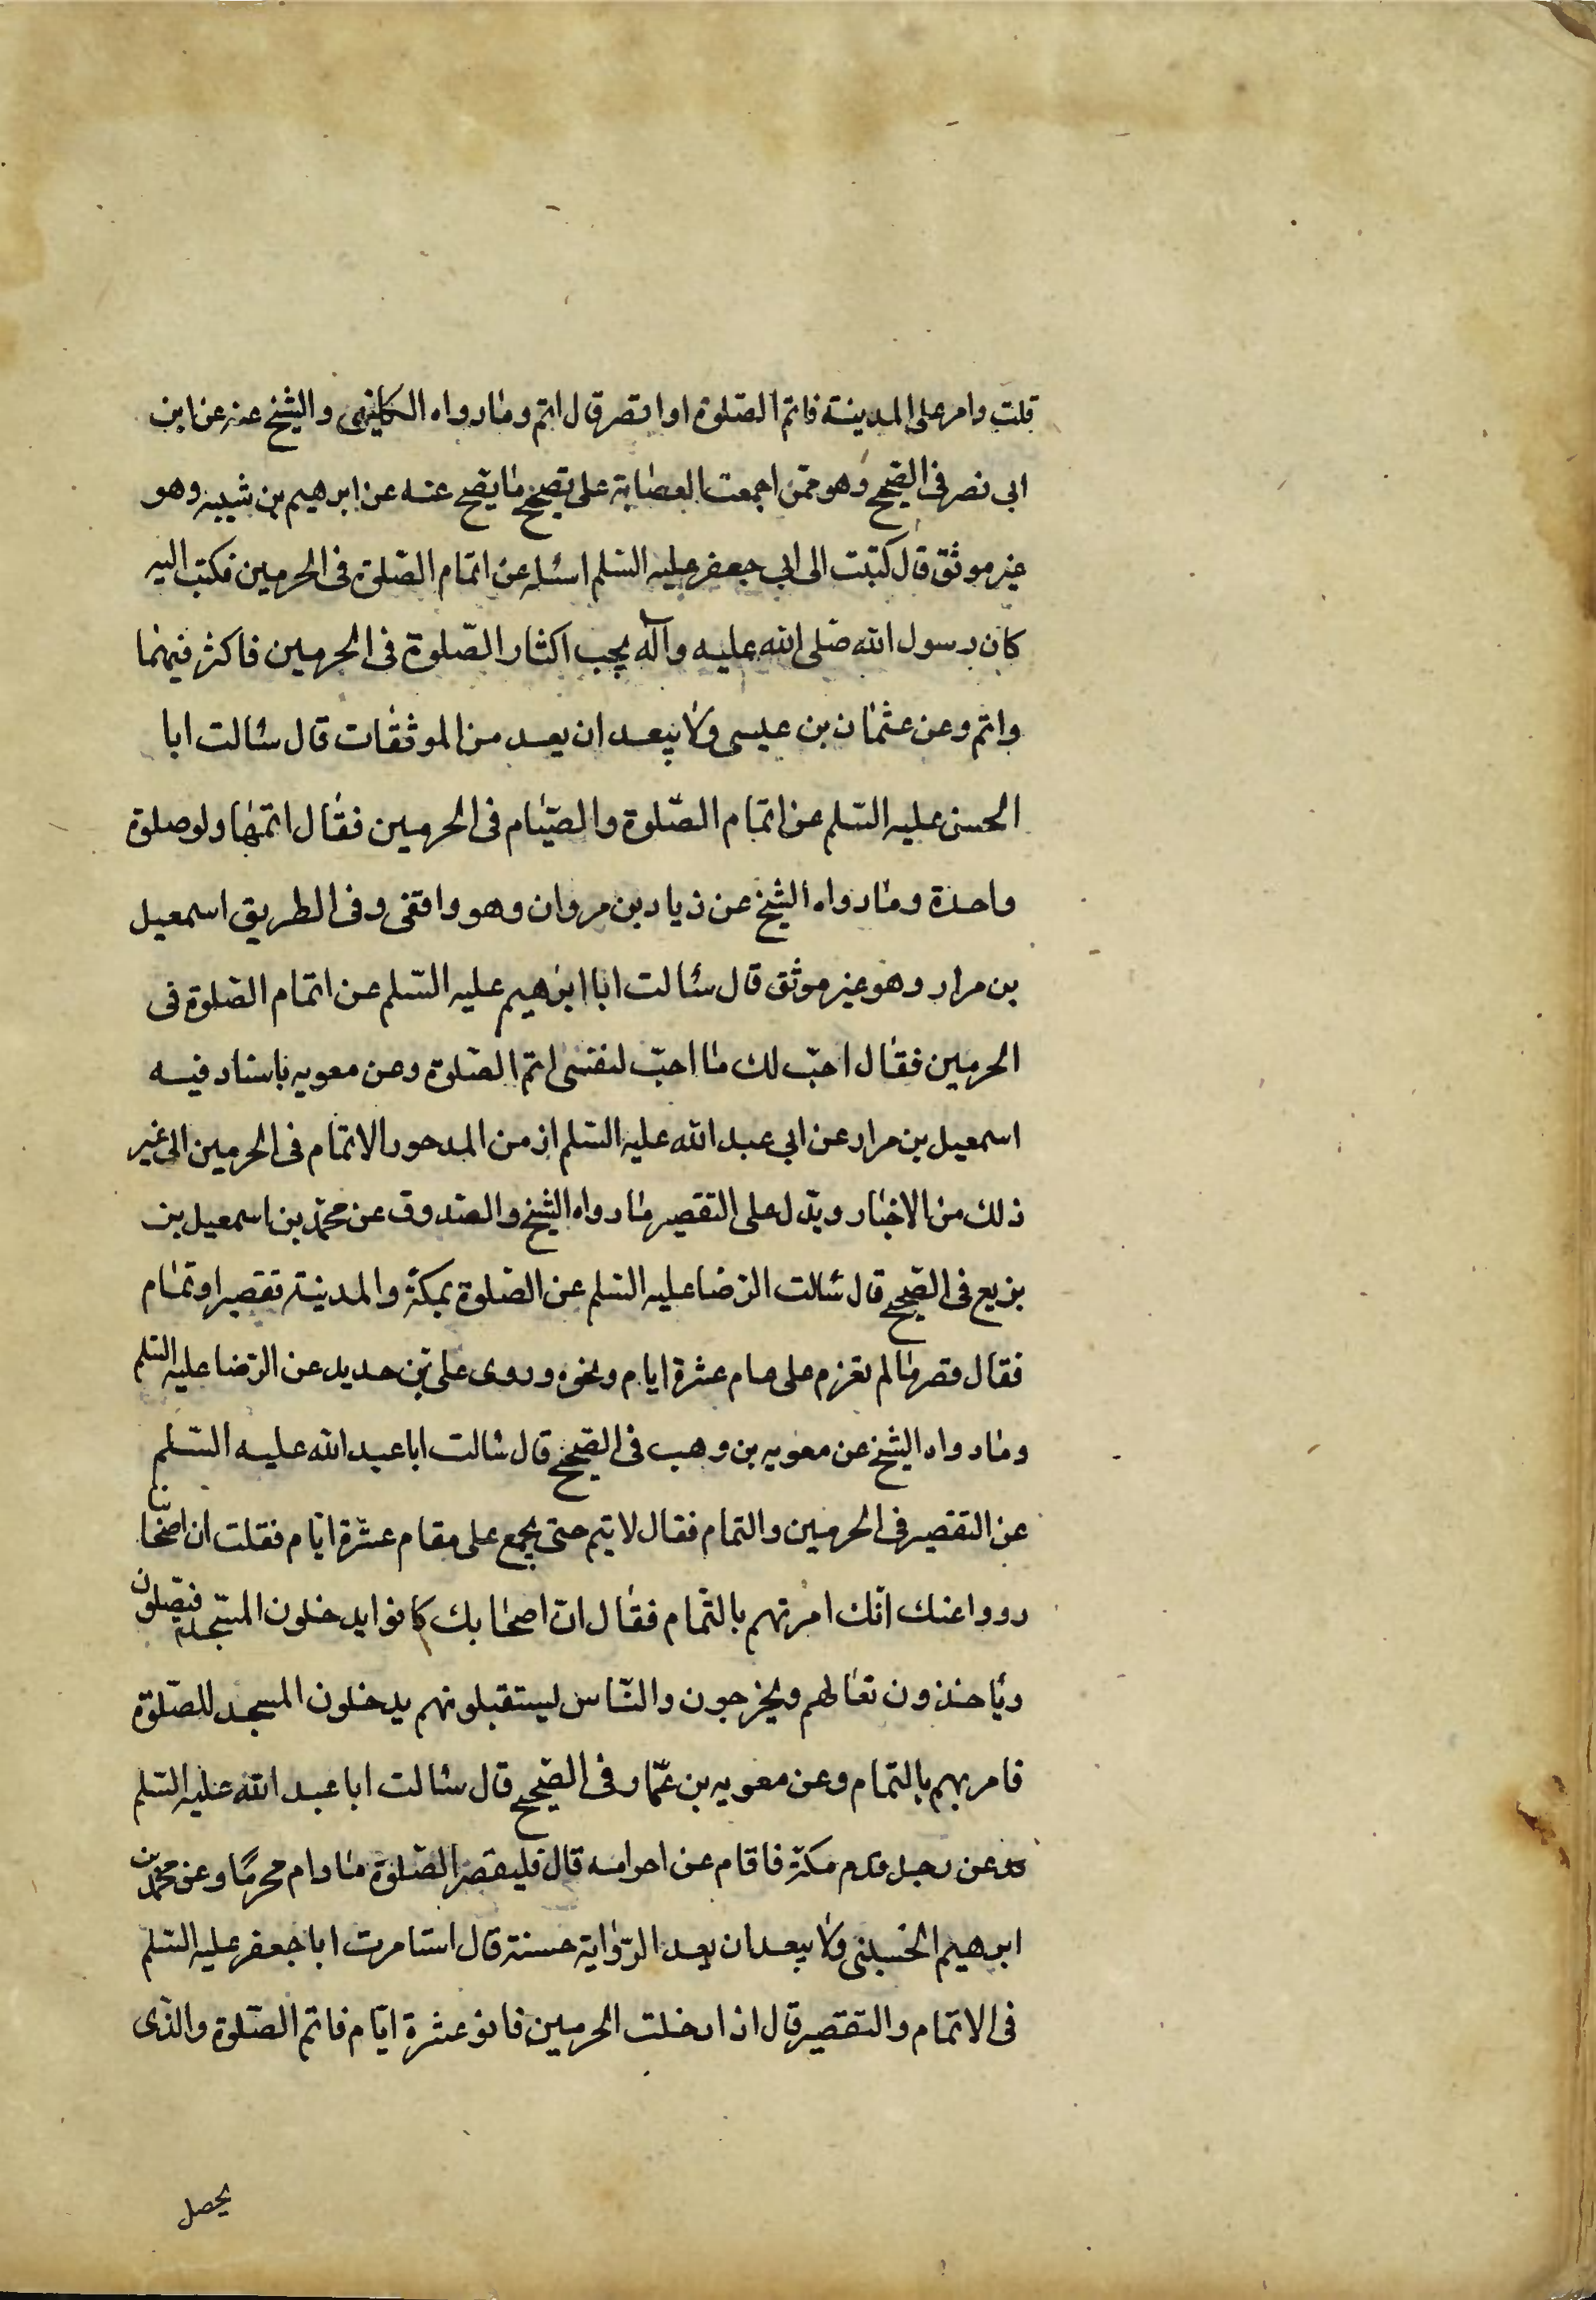 قلت وامر على المدينة فاتم الصلوة او اقصر قال اتم وما رواه الكلينى والشيخ عنه عن ابن
ابى نصر فى الصحيح وهو ممّن اجمعت العصابة على تصحيح ما يصح عنه عن ابرهيم بن شيبه وهو
غير موثق قال كتبت الى ابى جعفر عليه السّلم اسئله عن اتمام الصّلوة فى الحرمين فكتب اليه
كان رسول الله صلى الله عليه وآله يحب اكثار الصّلوة فى الحرمين فاكثر فيهما
واتم وعن عثمان بن عيسى ولا يبعد ان يعد من الموثقات قال سئالت ابا
الحسن عليه السّلم عن اتمام الصّلوة والصّيام فى الحرمين فقال اتمها ولو صلوة
واحدة وما رواه الشيخ عن زياد بن مروان وهو واقفى وفى الطريق اسمعيل
بن مرار وهو غير موثق قال سئالت ابا ابرهيم عليه السّلم عن اتمام الصّلوة فى
الحرمين فقال احبّ لك ما احبّ لنفسى اتم الصّلوة وعن معويه باسناد فيه
اسمعيل بن مرار عن ابى عبد الله عليه السّلم ان من المدحور الاتمام فى الحرمين الى غير
ذلك من الاخبار ويدّل على التقصير ما رواه الشيخ والصّدوق عن محمّد بن اسمعيل بن
بزيع فى الصّحيح قال سئالت الرّضا عليه السّلم عن الصّلوة بمكة والمدينة تقصير او تمام
فقال قصر ما لم تعزم على مام عشرة ايام ونحوه وروى على بن حديد عن الرّضا عليه السّلم
وما رواه الشيخ عن معويه بن وهب فى الصّحيح قال سئالت ابا عبد الله عليه السّلم
عن التقصير فى الحرمين والتمام فقال لا يتم حتى يجمع على مقام عشرة ايّام فقلت ان اصحابنا
رووا عنك انّك امرتهم بالتّمام فقال انّ اصحابك كانوا يدخلون المسجد فيصّلون
ويأخذون نعالهم ويخرجون والنّاس ليستقبلونهم يدخلون المسجد للصّلوة
فامر بهم بالتمام وعن معويه بن عمّار فى الصّحيح قال سئالت ابا عبد الله عليه السّلم
عن رجل قدم مكة فاقام عن احرامه قال فليقصر الصّلوة ما دام محرمًا وعن محمّد بن
ابرهيم الحضينى ولا يبعد ان يعد الرّواية حسنة قال استامرت ابا جعفر عليه السّلم
فى الاتمام والتقصير قال اذا دخلت الحرمين فانو عشرة ايّام فاتم الصّلوة والذّى
يحصل